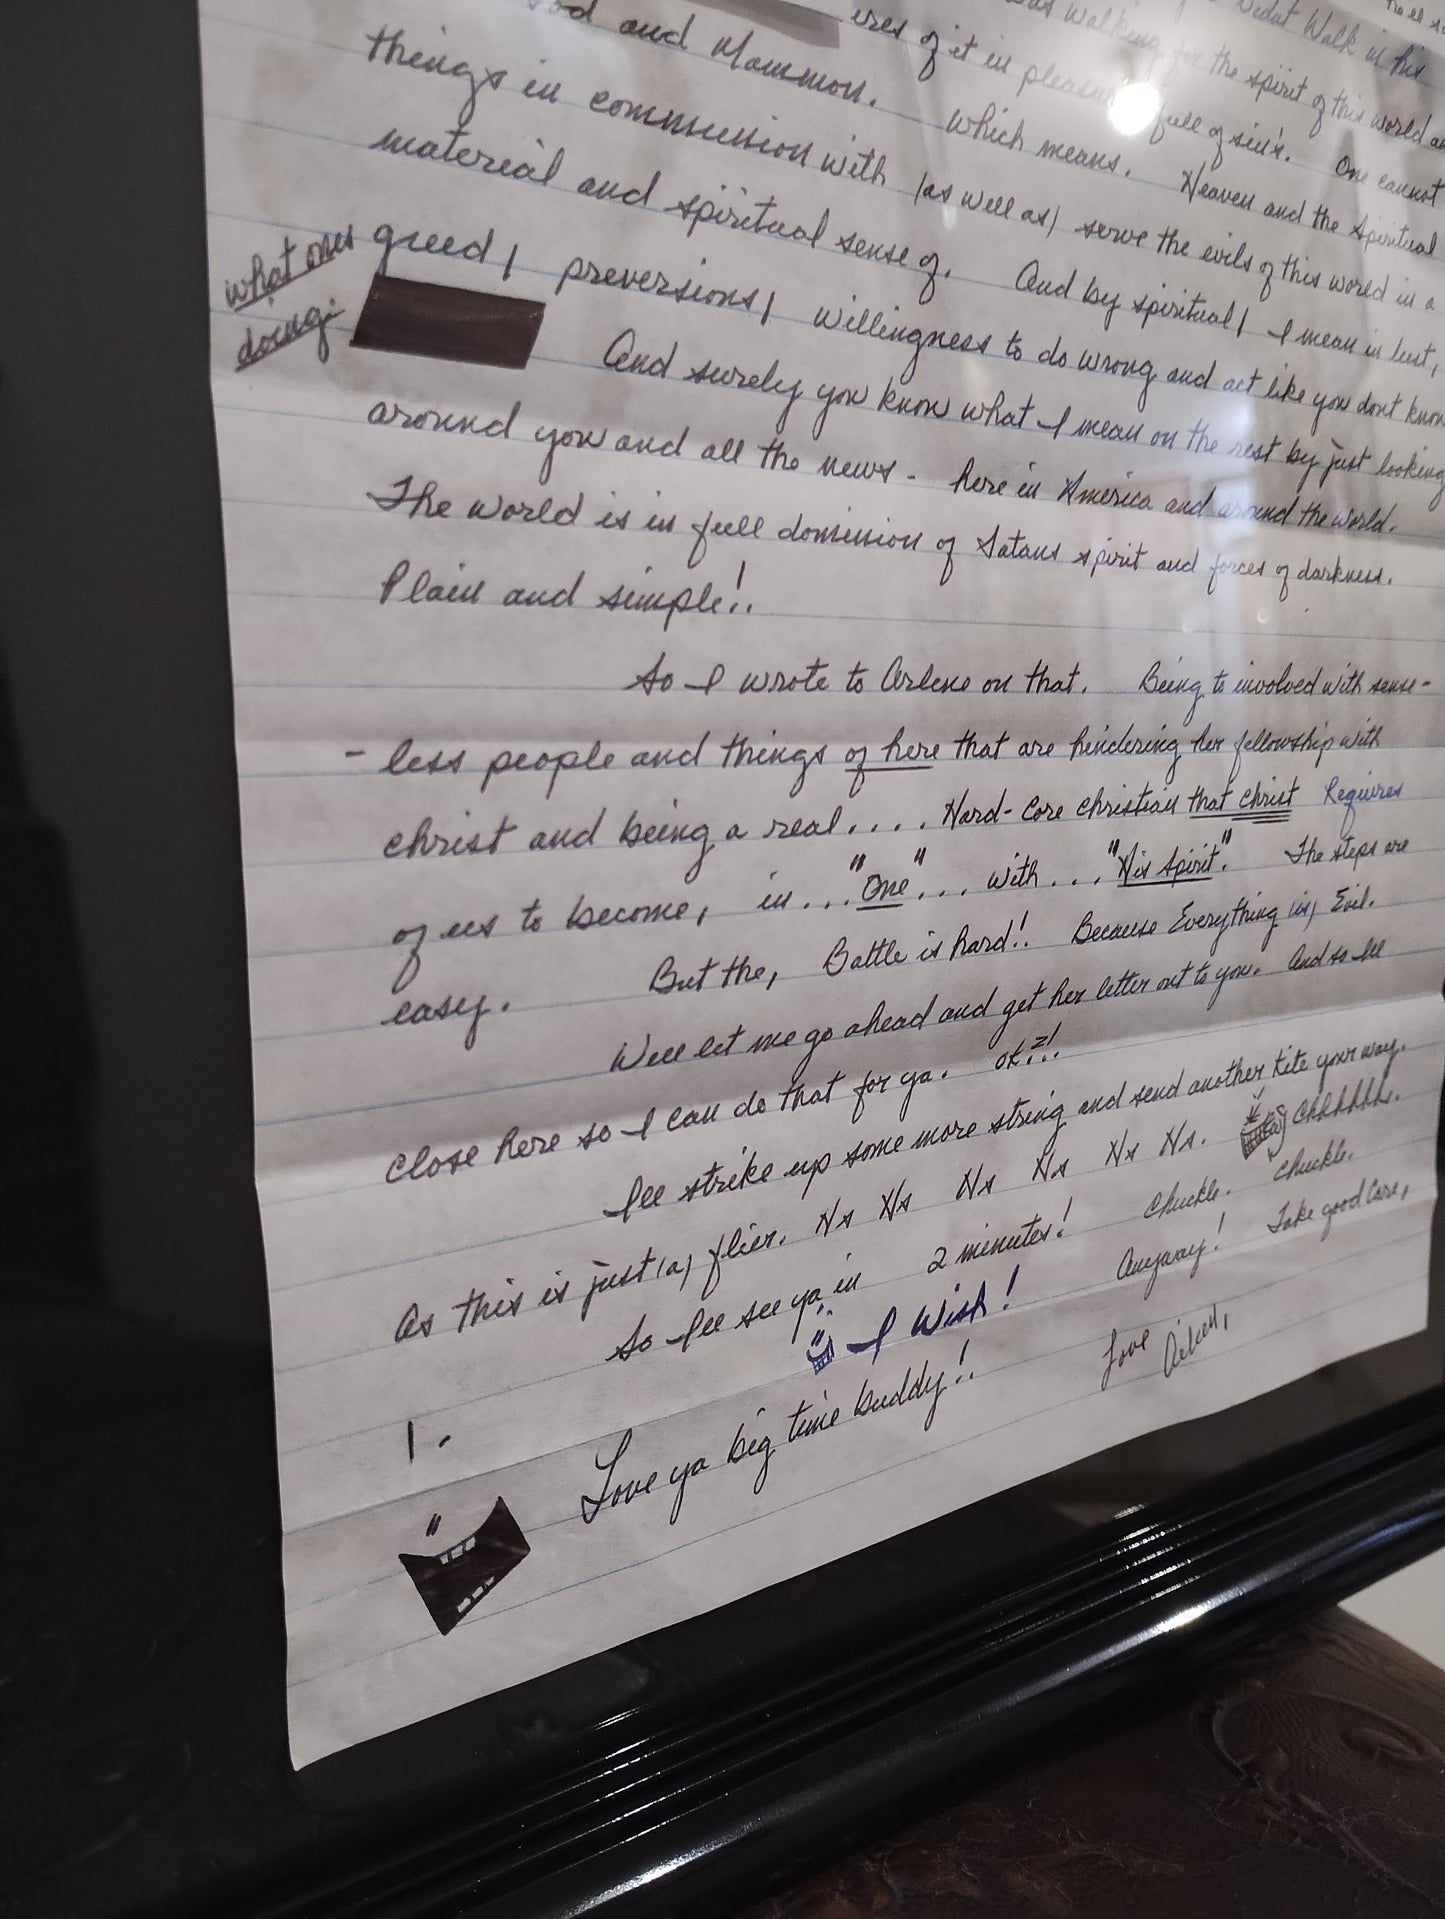 the spirit of this world
ures of it in pleasures full of sin's. One cannot
God and Mammon. which means. Heaven and the Spiritual
things in communion with (as well as) serve the evils of this world in a
material and spiritual sense of. And by spiritual, I mean in lust,
greed, preversions, willingness to do wrong and act like you dont know
what ones
doing.
And surely you know what I mean on the rest by just looking
around you and all the news - here in America and around the world.
The world is in full dominion of Satans spirit and forces of darkness.
Plain and simple!.
So I wrote to Arlene on that. Being to involved with sense-
- less people and things of here that are hindering her fellowship with
christ and being a real.... Hard-Core christian that christ Requires
of us to become, in... "One"... with... "His Spirit". The steps are
easy. But the, Battle is hard!. Because Everything (is) Evil.
Well let me go ahead and get her letter out to you. And so Ill
close here so I can do that for ya. ok..?!
Ill strike up some more string and send another kite your way.
As this is just (a) flier. Ha Ha Ha Ha Ha Ha. Chhhhhh.
So Ill see ya in 2 minutes! Chuckle. Chuckle.
I Wish! Anyway! Take good Care,
1.
Love ya big time buddy!! Love